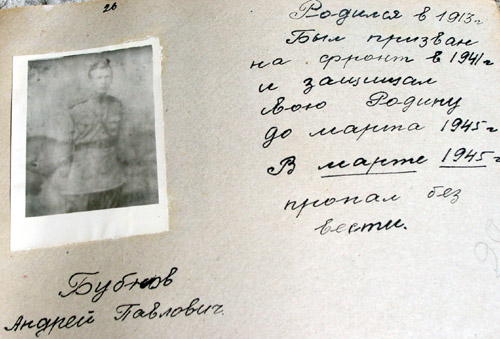 26
Родился в 1913 г
Был призван
на фронт в 1941 г
и защищал
свою Родину
до марта 1945 г
В марте 1945 г
пропал без
вести.
Бубнов
Андрей Павлович.